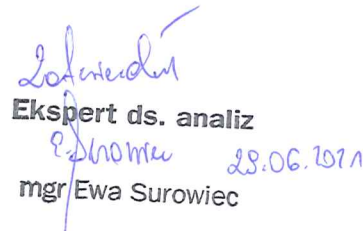 Zatwierdził
Ekspert ds. analiz
E. Surowiec 29.06.2021
mgr Ewa Surowiec